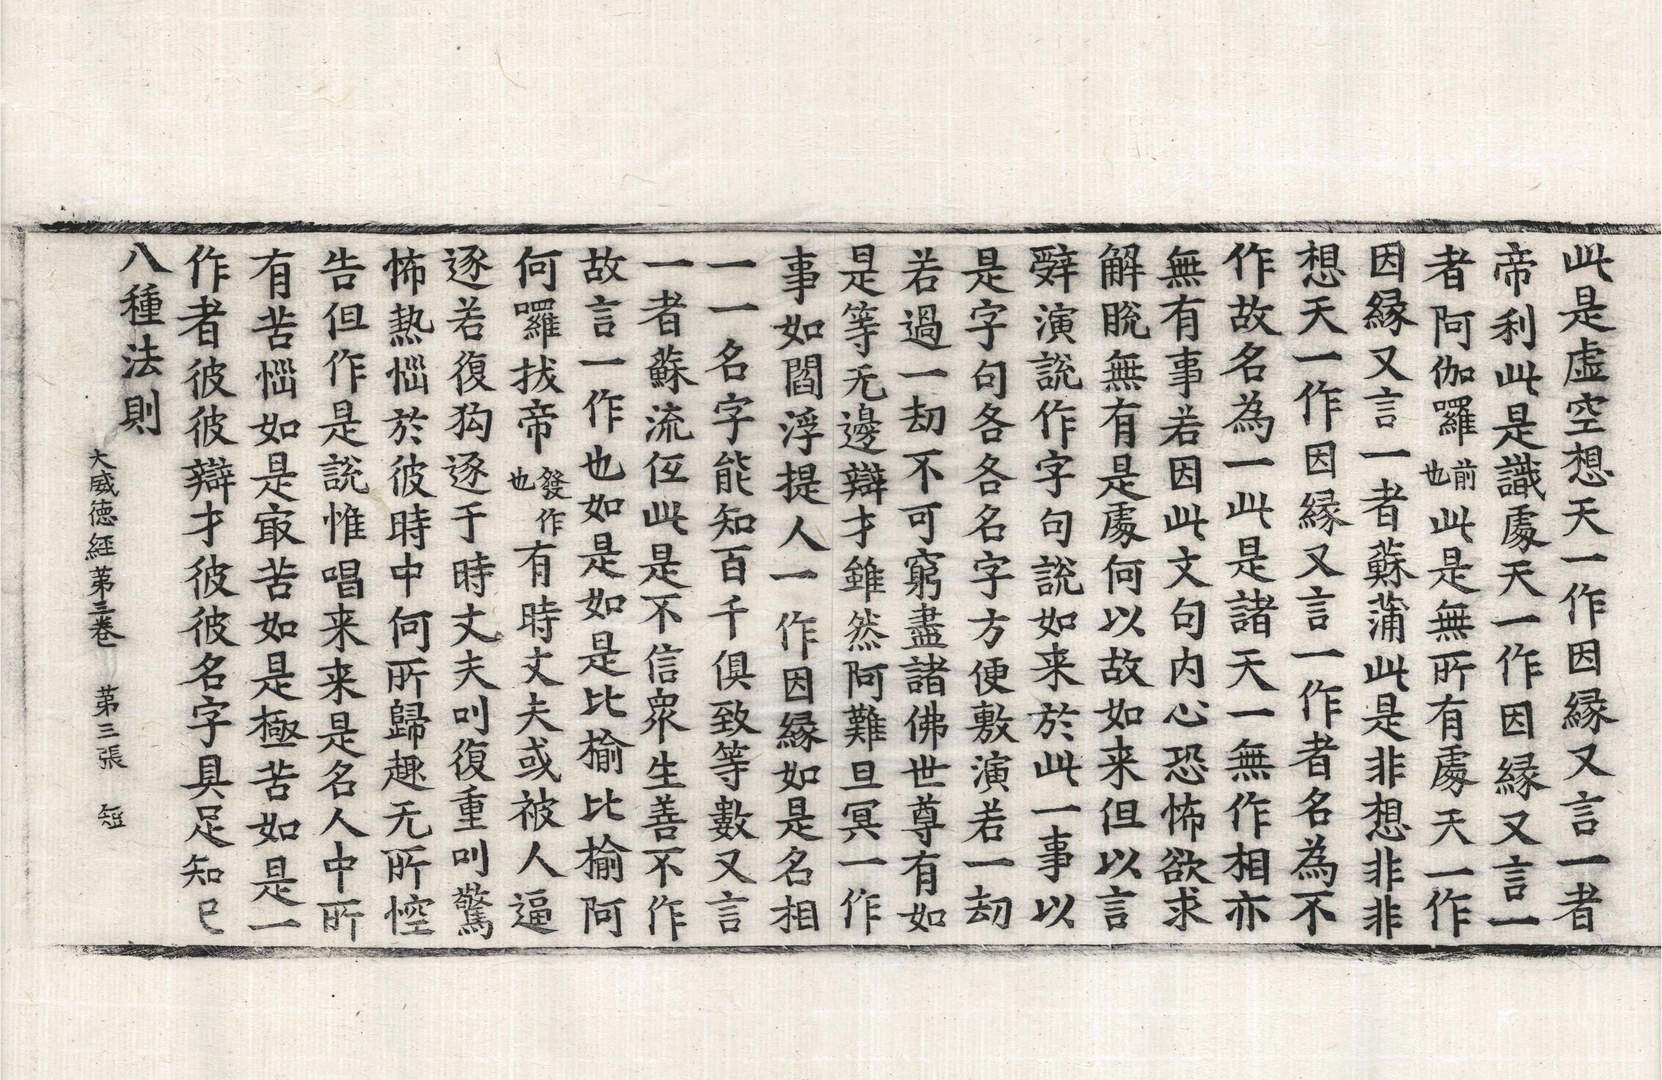 此是虛空想天一作因縁又言一者
帝利此是識處天一作因縁又言一
者阿伽囉前也此是無所有處天一作
因縁又言一者蘇蒲此是非想非非
想天一作因縁又言一作者名為不
作故名為一此是諸天一無作相亦
無有事若因此文句内心恐怖欲求
解脫無有是處何以故如来但以言
辤演說作字句說如来於此一事以
是字句各各名字方便敷演若一劫
若過一劫不可窮盡諸佛世尊有如
是等无邊辯才雖然阿難旦冥一作
事如閻浮提人一作因縁如是名相
一一名字能知百千俱致等數又言
一者蘇流伾此是不信衆生善不作
故言一作也如是如是比榆比榆阿
何囉拔帝發作也有時丈夫或被人逼
逐若復狗逐于時丈夫叫復重叫驚
怖熱惱於彼時中何所歸趣无所悾
告但作是說惟唱来来是名人中所
有苦惱如是㝡苦如是極苦如是一
作者彼彼辯才彼彼名字具足知已
八種法則
大威德經第三卷　第三張　短